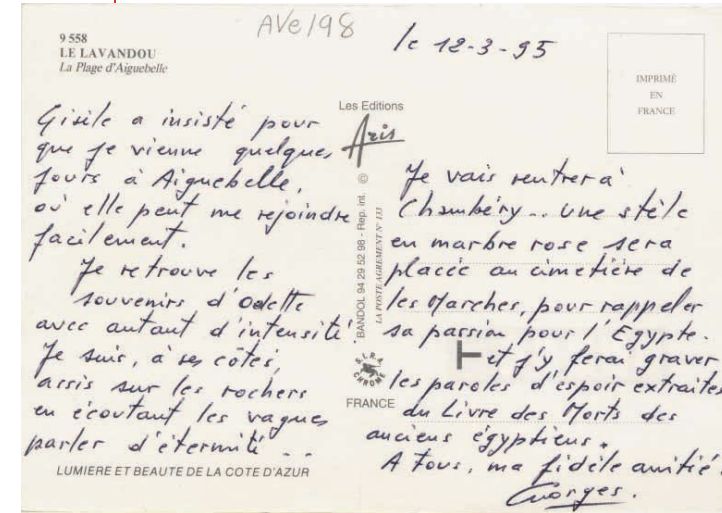 AVe198
9 558
LE LAVANDOU
La Plage d'Aiguebelle
le 12-3-95
IMPRIMÉ
EN
FRANCE
Gisèle a insisté pour
que je vienne quelques
jours à Aiguebelle,
où elle peut me rejoindre
facilement.
Je retrouve les
souvenirs d'Odette
avec autant d'intensité.
Je suis, à ses côtés,
assis sur les rochers
en écoutant les vagues
parler d'éternité...
LUMIERE ET BEAUTE DE LA COTE D'AZUR
Les Editions
Aris
BANDOL 94 29 52 98 - Rep. int. ©
LA POSTE AGREMENT N° 133
S.L.R.A.
CHROME
FRANCE
Je vais rentrer à
Chambéry.. Une stèle
en marbre rose sera
placée au cimetière de
les Marches, pour rappeler
sa passion pour l'Egypte.
et j'y ferai graver
les paroles d'espoir extraites
du Livre des Morts des
anciens égyptiens.
A tous, ma fidèle amitié.
Georges.